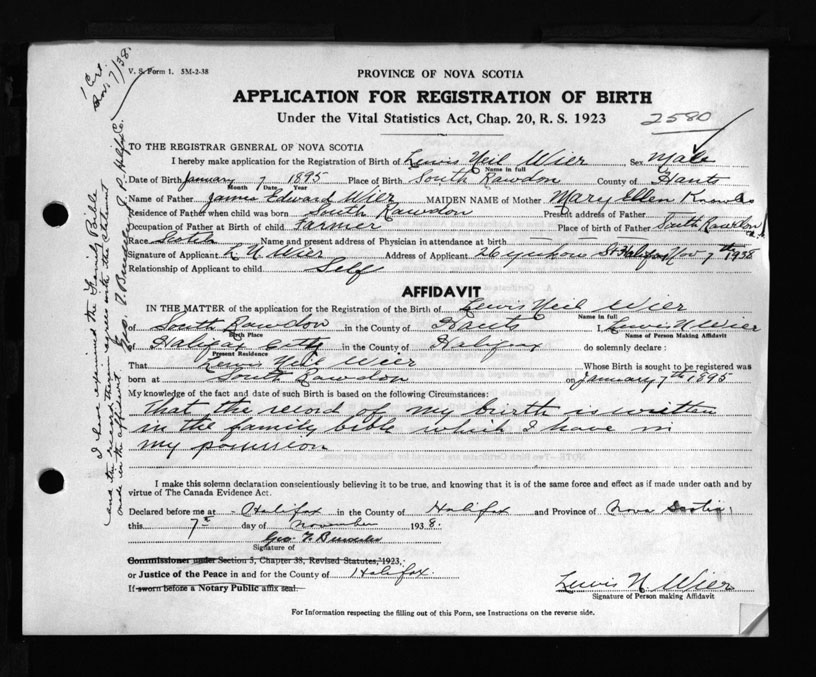 V. S. Form 1. 5M-2-38
PROVINCE OF NOVA SCOTIA
APPLICATION FOR REGISTRATION OF BIRTH
Under the Vital Statistics Act, Chap. 20, R. S. 1923
2580
TO THE REGISTRAR GENERAL OF NOVA SCOTIA
I hereby make application for the Registration of Birth of Lewis Neil Wier Sex Male
Name in full
Date of Birth January 7 1895 Place of Birth South Rawdon County of Hants
Month / Date / Year
Name of Father James Edward Wier MAIDEN NAME of Mother Mary Ellen Knowles
Residence of Father when child was born South Rawdon Present address of Father
Occupation of Father at Birth of child Farmer Place of birth of Father South Rawdon
Race Scotch Name and present address of Physician in attendance at birth — —
Signature of Applicant L N Wier Address of Applicant 26 Yukon St Halifax Nov 7th 1938
Relationship of Applicant to child Self
AFFIDAVIT
IN THE MATTER of the application for the Registration of the Birth of Lewis Neil Wier
Name in full
of South Rawdon in the County of Hants I, Lewis N Wier
Birth Place Name of Person Making Affidavit
of Halifax City in the County of Halifax do solemnly declare :
Present Residence
That Lewis Neil Wier Whose Birth is sought to be registered was
born at South Rawdon on January 7th 1895
My knowledge of the fact and date of such Birth is based on the following Circumstances:
That the record of my birth is written
in the family bible which I have in
my possession
I make this solemn declaration conscientiously believing it to be true, and knowing that it is of the same force and effect as if made under oath and by
virtue of The Canada Evidence Act.
Declared before me at Halifax in the County of Halifax and Province of Nova Scotia
this 7th day of November 1938.
Geo.
Signature of
Commissioner under Section 5, Chapter 38, Revised Statutes, 1923,
or Justice of the Peace in and for the County of Halifax.
If sworn before a Notary Public affix seal.
Lewis N. Wier
Signature of Person making Affidavit
For Information respecting the filling out of this Form, see Instructions on the reverse side.
I have examined the Family Bible
and the record therein agrees with the statement
made in the affidavit. Geo. J. P. Hfx Co.
Nov 7/38.